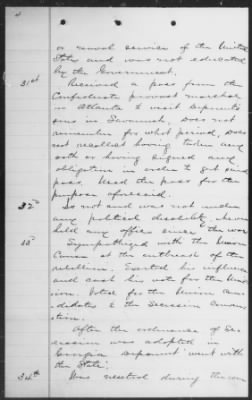 4
or naval service of the United
States and was not educated
by the Government.
31st Received a pass from the
Confederate provost marshal
in Atlanta to visit deponents
sons in Savannah, does not
remember for what period, does
not recollect having taken any
oath or having signed any
obligation in order to get said
pass. Used the pass for the
purpose aforesaid.
32d Is not and was not under
any political disability, never
held any office since the war
33d Sympathized with the Union
Cause at the outbreak of the
rebellion. Exerted his influence
and cast his vote for the Un-
ion. Voted for the Union can-
didates to the Secession Conven-
tion.
After the ordinance of Sec-
ession was adopted in
Georgia deponent "went with
the State".
34th Was neutral during the war